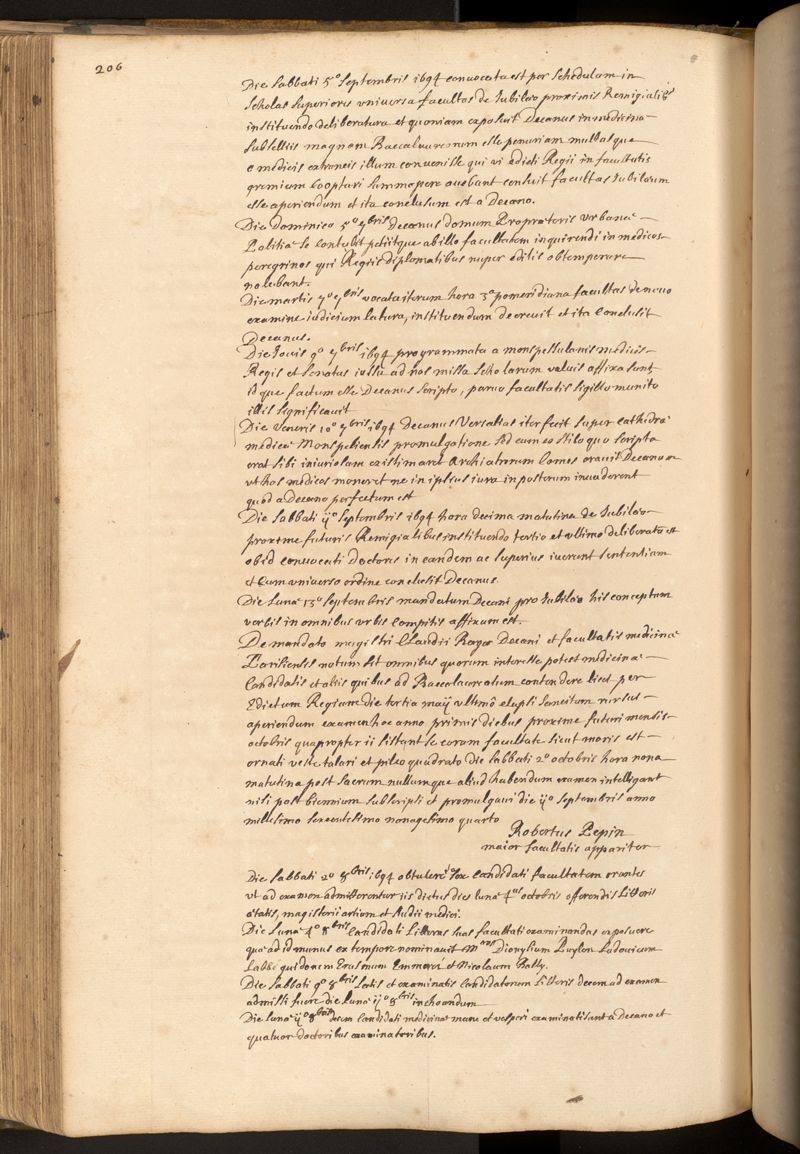 206
Die Sabbati 5° Septembris 1694 convocata est per Schedulam in
Scholas Superiores universa facultas de Jubilæo proximis Remigialib'
instituendo deliberatura et quoniam exposuit Decanus in medicinæ
subselliis magnam Baccalaureorum esse penuriam multosque
e medicis extraneis illum convenisse qui vi edicti Regii in facultatis
gremium cooptari summopere avebant censuit facultas Jubilæum
esse aperiendum et ita conclusum est a Decano.
Die Dominica 5° 7bris Decanus domum Proprætoris Urbanæ
Politiæ se contulit petiitque ab illo facultatem inquirendi in medicos
peregrinos qui Regiis diplomatibus nuper editis obtemperare
nolebant.
Die martis 7° 7bris vocata iterum hora 3a pomeridiana facultas de novo
examine iudicium latura, instituendum decrevit et ita conclusit
Decanus.
Die Jovis 9° 7bris 1694 programmata a monspessulanis medicis
Regis et Senatus iussu ad nos missa scholarum valvis affixa sunt
id que factum esse Decanus scripto, parvo facultatis sigillo munito
illis significavit
Die Veneris 10° 7bris 1694 Decanus Versalias iter fecit super cathedræ
medicæ Monspeliensis promulgatione sed cum eo stilo quo scripta
erat sibi iniuriosam existimaret Archiatrorum Comes oravit Decanum
ut hos medicos moneret ne in ipsius iura in posterum invaderent
quod a Decano perfectum est
Die Sabbati ij° Septembris 1694 hora decima matutina de Jubilæo
proxime futuris Remigialibus instituendo tertio et ultimo deliberatum est
ob id convocati Doctores in eandem ac superius iverunt sententiam
et cum universo ordine conclusit Decanus.
Die Lunæ 13° Septembris mandatum Decani pro Jubilæo his conceptum
verbis in omnibus urbis compitis affixum est.
De mandato magistri Claudii Berger Decani et facultatis medicinæ
Parisiensis notum sit omnibus quorum interesse potest medicinæ
Candidatis et aliis quibus ad Baccalaureatum contendere licet per
Edictum Regium die tertia maij ultimo elapsi sancitum rursus
aperiendum examen hoc anno primis diebus proxime futuri mensis
octobris quapropter ii sistant se coram facultate sicut moris est
ornati veste talari et pileo quadrato die sabbati 2° octobris hora nona
matutina post sacrum nullumque aliud habendum examen intelligant
nisi post biennium subscripsi et promulgavi die ij° Septembris anno
millesimo sexcentesimo nonagesimo quarto
Robertus Pepin
maior facultatis apparitor
Die Sabbati 2° 8bris 1694 obtulere se Candidati facultatem orantes
ut ad examen admitterentur iis dictus dies lunæ 4us octobris offerendis litteris
ætatis, magisterii artium et studii medici.
Die Lunæ 4° 8bris Candidati Litteras suas facultati examinandas exposuere
quæ ad id munus ex tempore nominavit Mros Dionysium Puylon Ludovicum
Labbé quidonem Erasmum Emmerez et Nicolaum Bailly.
Die Sabbati 9° 8bris lectis et examinatis Candidatorum litteris decem ad examen
admissi fuere die lunæ ij° 8bris inchoandum
Die lunæ ij° 8bris decem Candidati medicinæ mane et vesperi examinati sunt a Decano et
quatuor doctoribus examinatoribus.